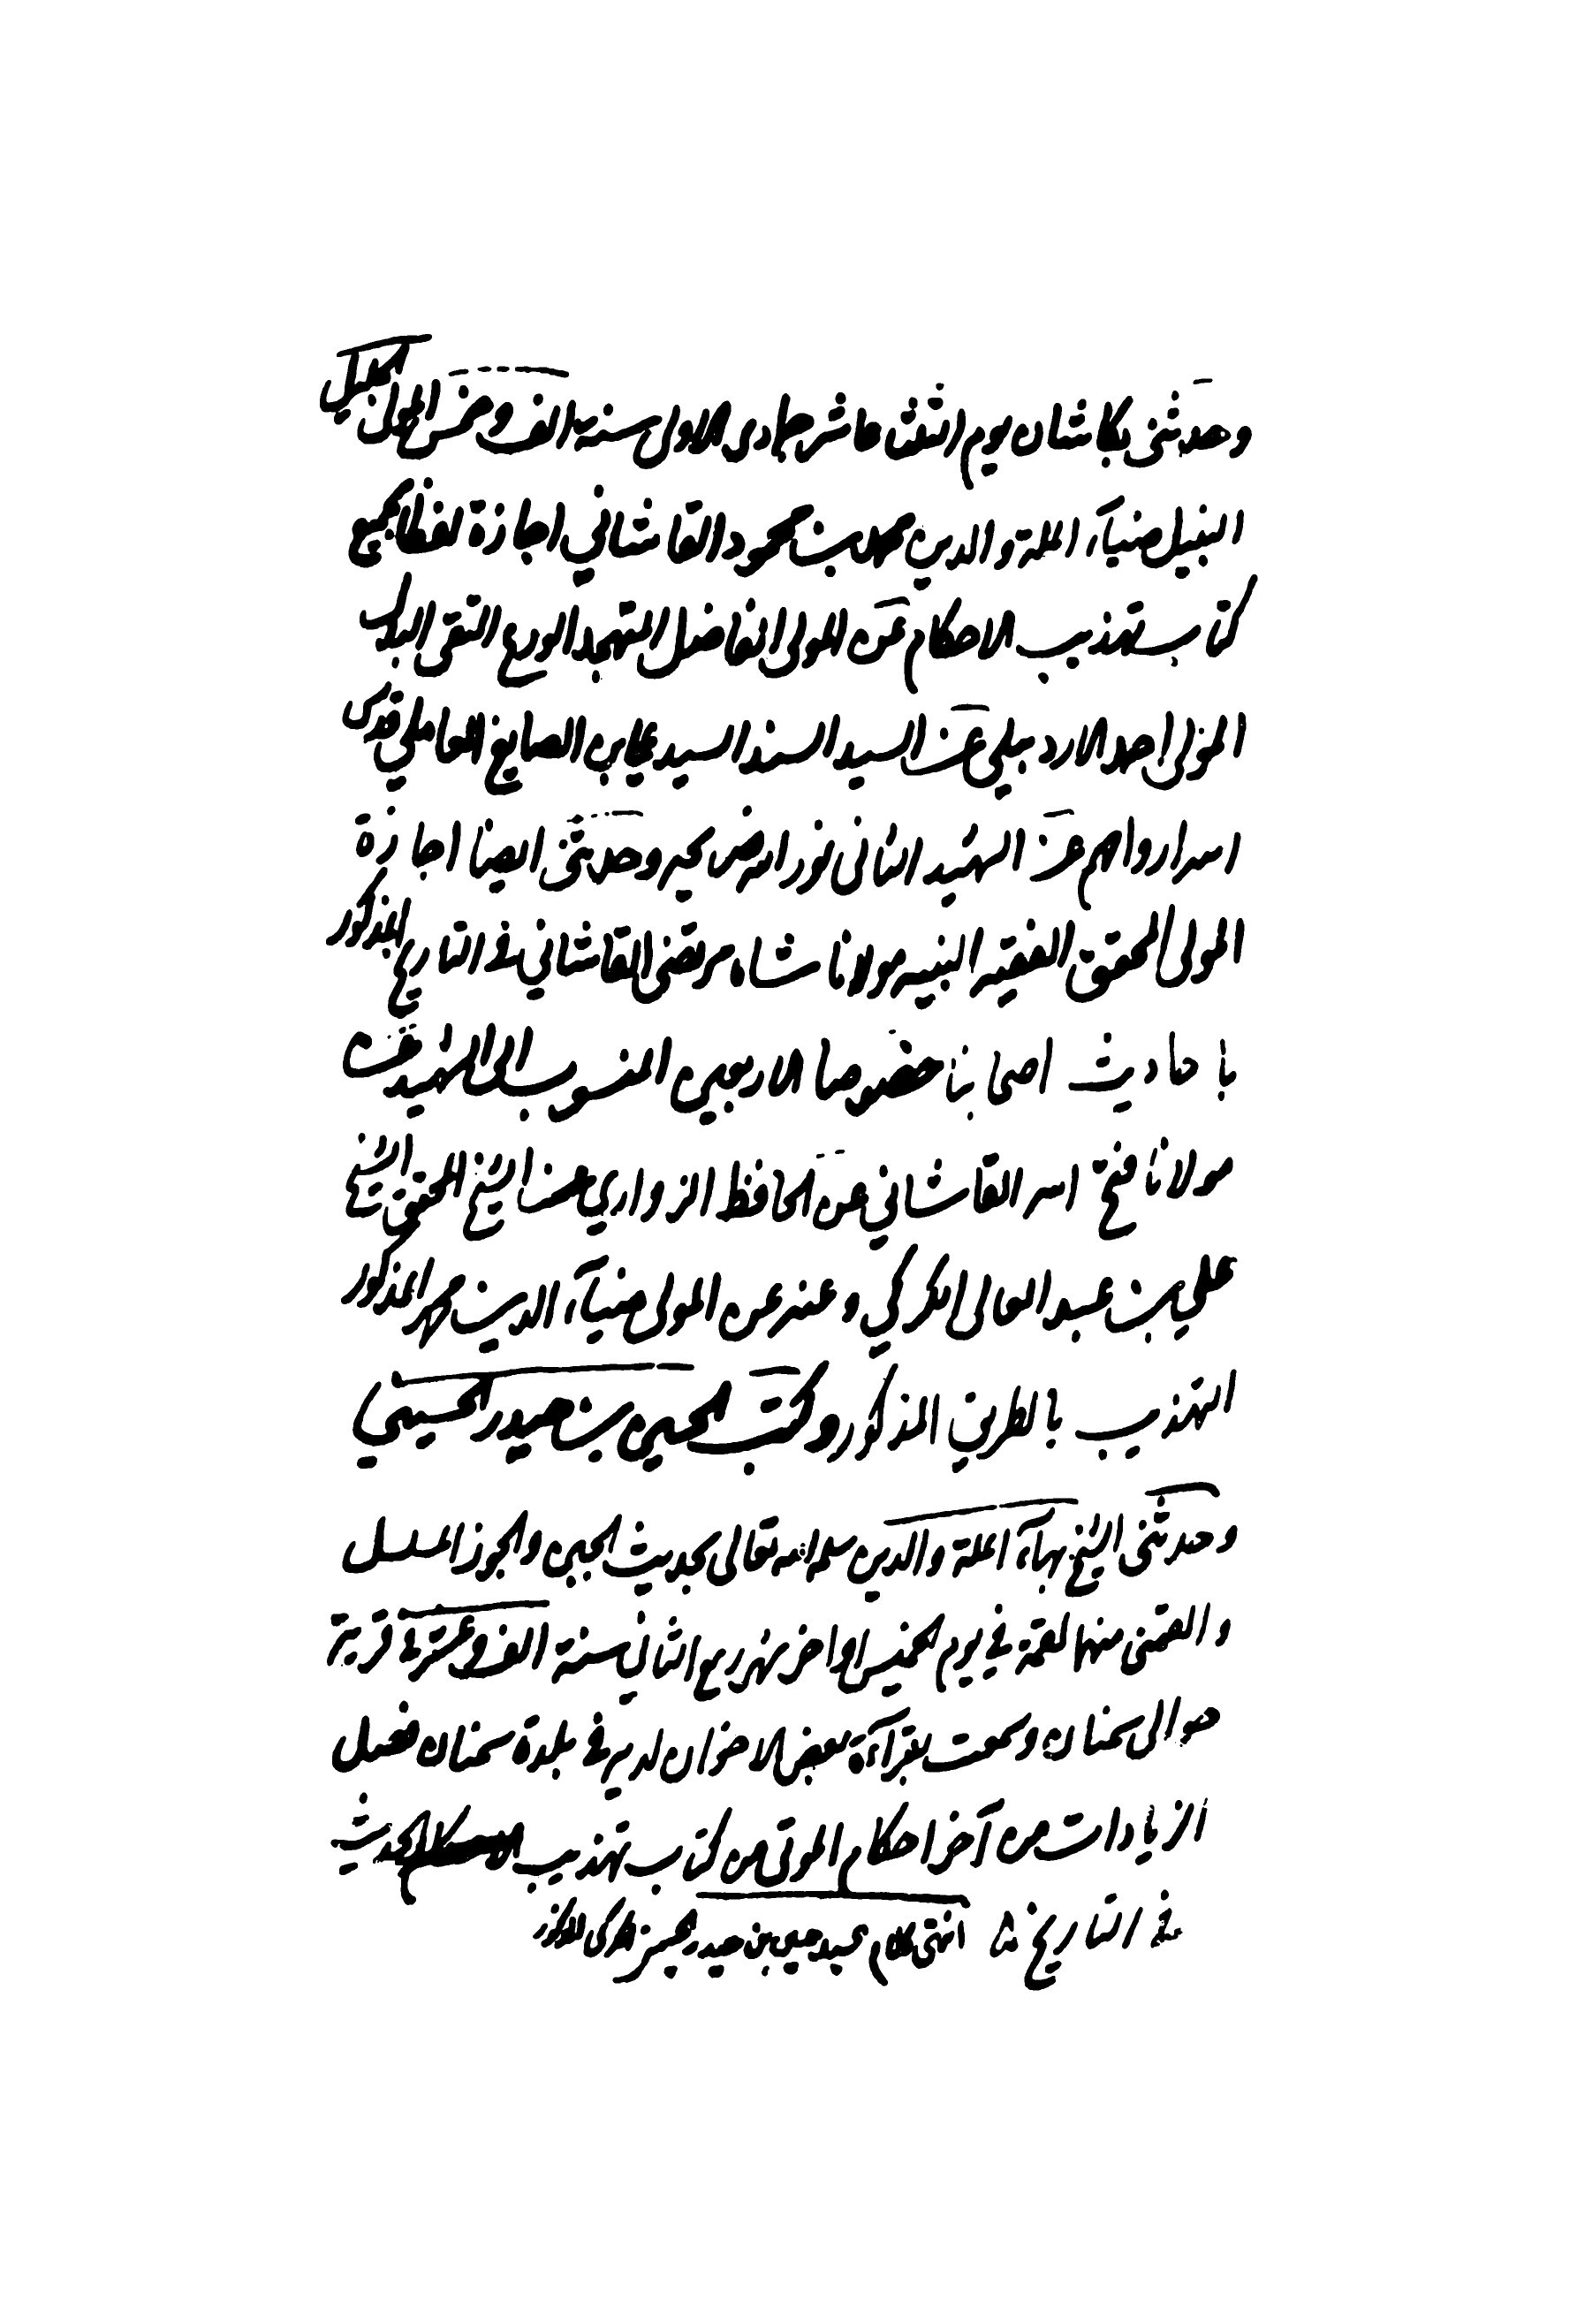 وحدثني بكاشان يوم الثلثا عاشر جمادى الاولى سنة الف وخمس المولى الجليل
النبيل ضياء الملة والدين محمد بن محمود القاشاني اجازة لفظا بجميع
كتاب تهذيب الاحكام عن المولى الفاضل المتهجد الورع التقي
المولى احمد الاردبيلي عن السيد السند السيد علي بن الصايغ العاملي قدس
اسرارواحهم عن الشهيد الثاني نور الله ضريحه وحدثني ايضا اجازة
المولى المحقق الفقيه النبيه مولانا شاه مرتضى القاشاني في التاريخ المذكور
باحاديث اصحابنا خصوصا الاربعين المنسوب الى الشهيد عن
مولانا فتح الله القاشاني عن الحافظ الزواري عن الشيخ المحقق الشيخ
علي بن عبد العالي الكركي وعنه عن المولى ضياء الدين محمد المذكور
التهذيب بالطريق المذكور وكتب الحسين بن حيدر الحسيني
وحدثني الشيخ بهاء الملة والدين سلمه الله تعالى بحديث الجبن والجوز المسلسل
والقمني منها لقمة في يوم الخميس اواخر شهر ربيع الثاني سنة الف وعشرة في قرية
حوالى سمنان وسمعت بقراءة بعض الاخوان لديه في بلدة سمنان فصل
الزيادات من آخر احكام الموتى من كتاب تهذيب الحديث
في التاريخ انتهى كلام السيد حسين بن حيدر الحسيني الكركي المذكور